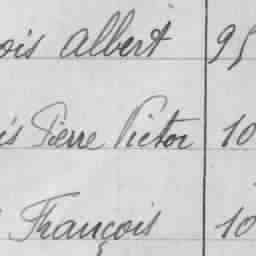 ois Albert 95
is Pierre Victor 10
François 10